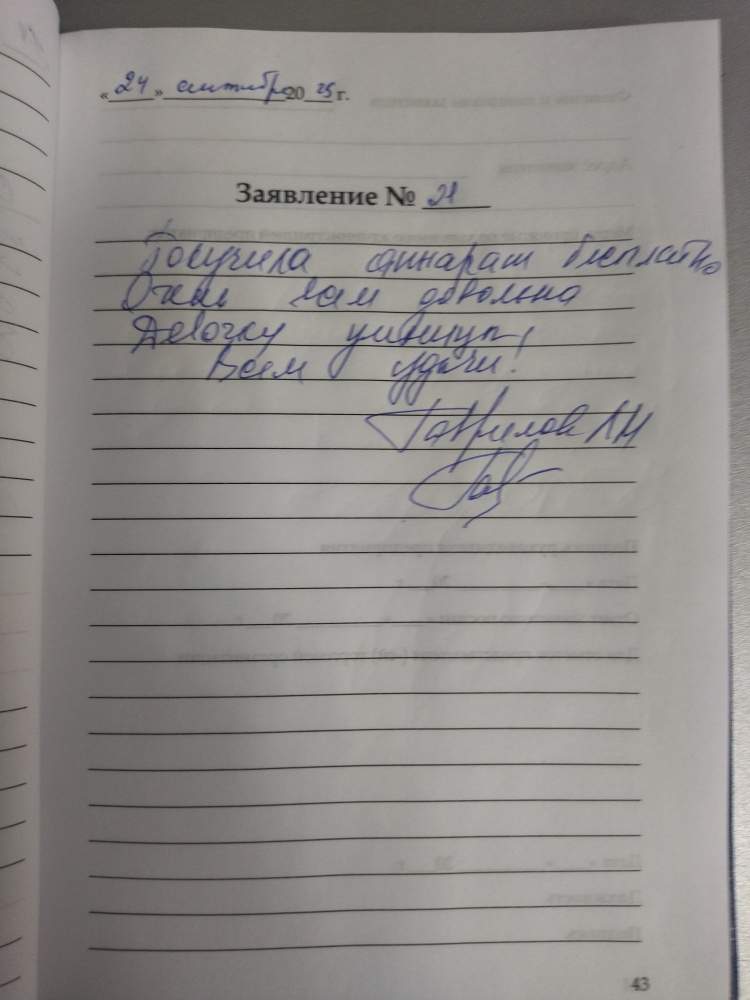 «24» сентября 2025 г.
Заявление № 21
Получила аппарат бесплатно
Очень вам довольна
Девочку
Всем удачи!
Гаврилова
43